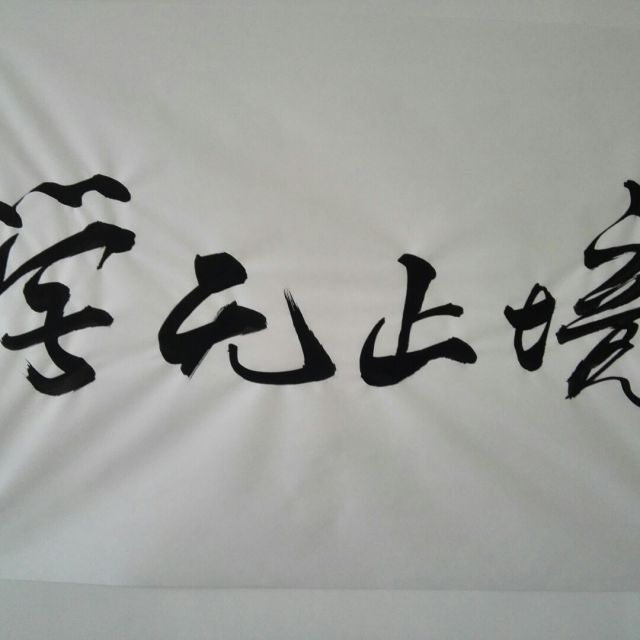 学无止境